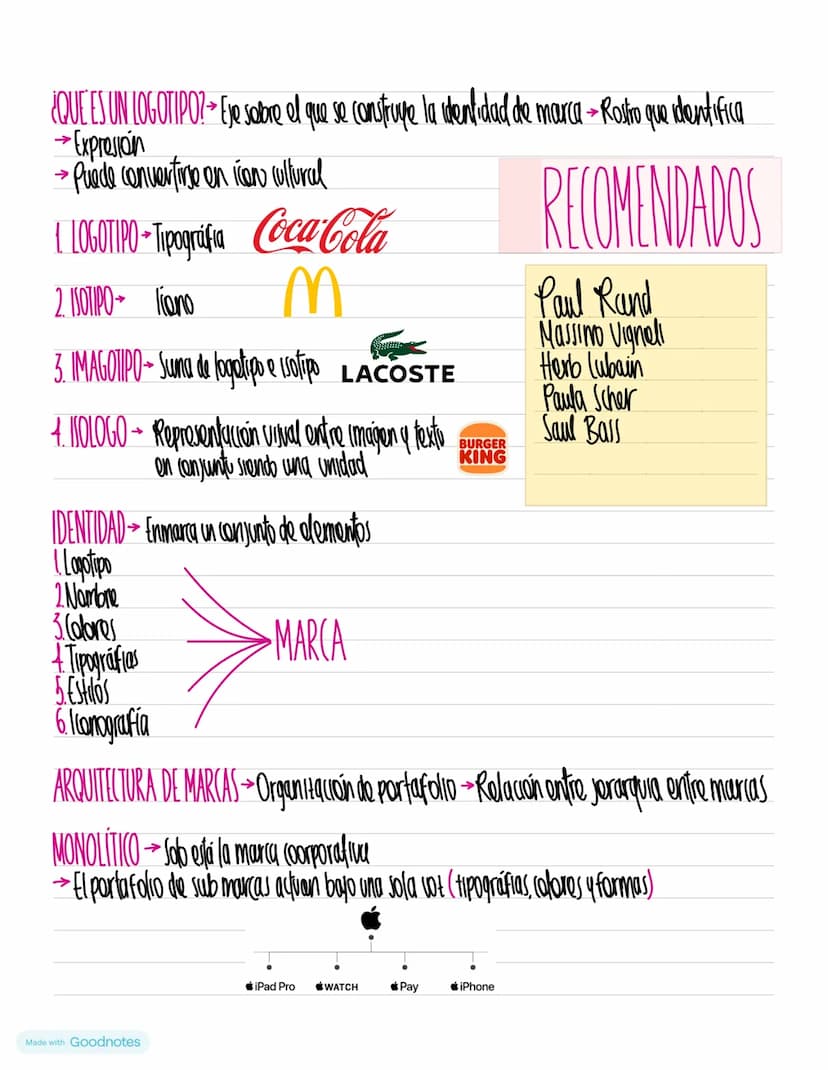 ¿QUÉ ES UN LOGOTIPO? → Eje sobre el que se construye la identidad de marca → Rostro que identifica
→ Expresión
→ Puede convertirse en ícono cultural
RECOMENDADOS
1. LOGOTIPO → Tipográfia
Coca-Cola
2. ISOTIPO → Ícono
3. IMAGOTIPO → Suma de logotipo e isotipo
LACOSTE
4. ISOLOGO → Representación visual entre imágen y texto
en conjunto siendo una unidad
BURGER
KING
Paul Rand
Massimo Vigneli
Herb Lubain
Paula Scher
Saul Bass
IDENTIDAD → Enmarca un conjunto de elementos
1. Logotipo
2. Nombre
3. Colores
4. Tipográfias
5. Estilos
6. Iconografía
MARCA
ARQUITECTURA DE MARCAS → Organización de portafolio → Relación entre jerarquia entre marcas
MONOLÍTICO → Solo está la marca coorporativa
→ El portafolio de sub marcas actuan bajo una sola voz (tipográfias, colores y formas)
iPad Pro
WATCH
Pay
iPhone
Made with Goodnotes